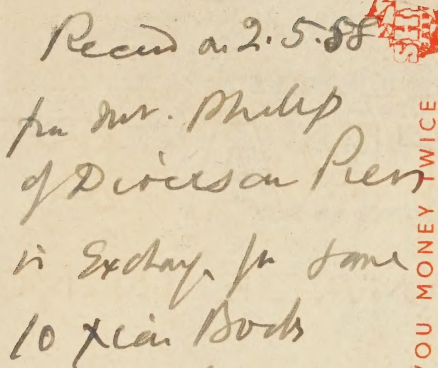 Recd on 2.5.58
from Mr. Philip
of Diocesan Press
in Exchange for some
10 Xian Books
YOU MONEY TWICE